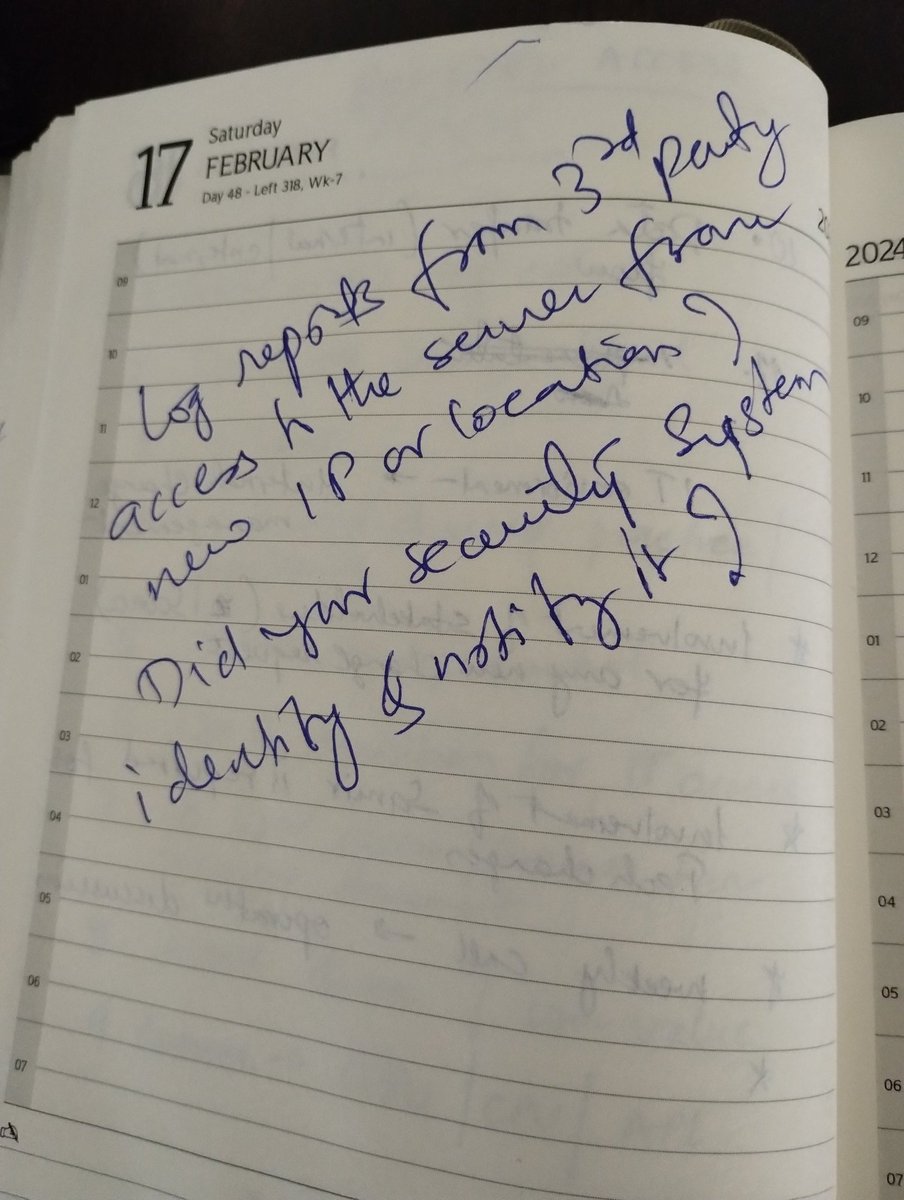 17
Saturday
FEBRUARY
Day 48 - Left 318, Wk-7
2024
Log reports from 3rd party
access to the server from
new IP or location?
Did your security system
identify & notify it?
09
10
11
12
01
02
03
04
05
06
07
09
10
11
12
01
02
03
04
05
06
07